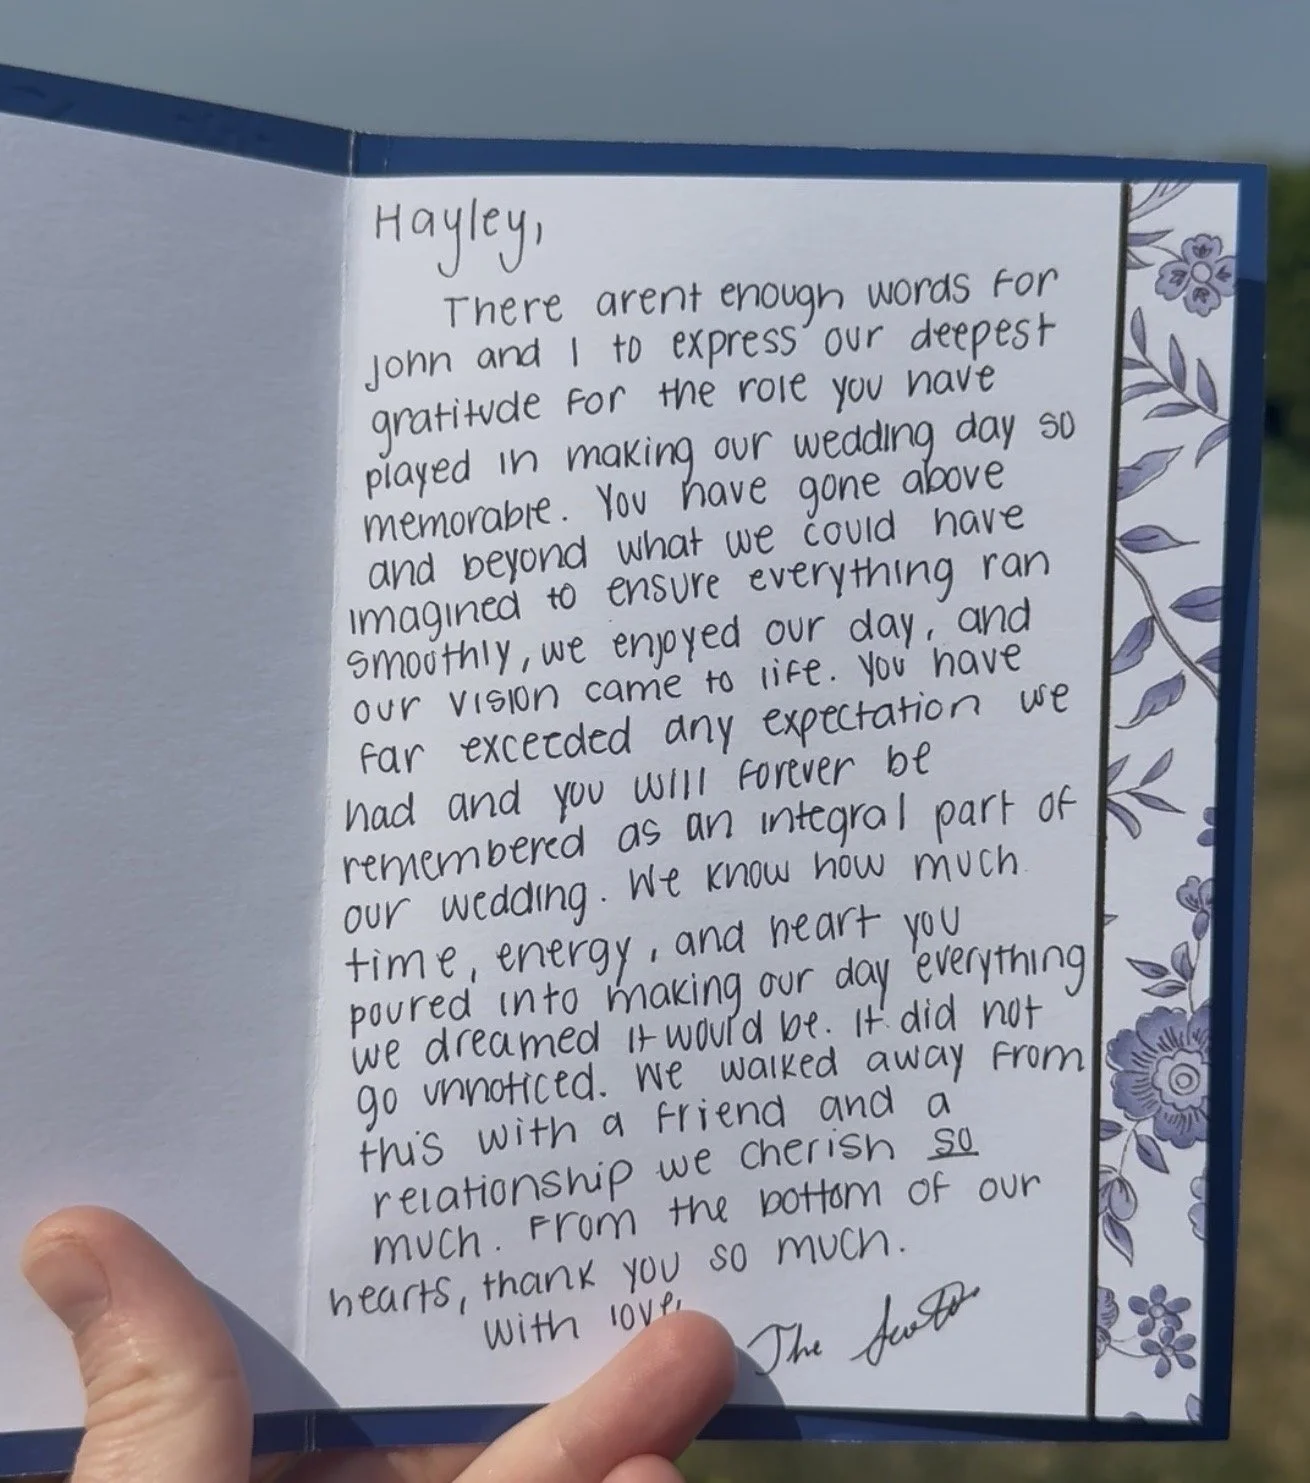 Hayley,
There arent enough words for
John and I to express our deepest
gratitude for the role you have
played in making our wedding day so
memorable. You have gone above
and beyond what we could have
imagined to ensure everything ran
smoothly, we enjoyed our day, and
our vision came to life. You have
far exceeded any expectation we
had and you will forever be
remembered as an integral part of
our wedding. We know how much
time, energy, and heart you
poured into making our day everything
we dreamed it would be. It did not
go unnoticed. We walked away from
this with a friend and a
relationship we cherish so
much. From the bottom of our
hearts, thank you so much.
With love,
The